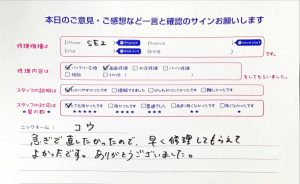 本日のご意見・ご感想など一言と確認のサインお願いします
修理機種は
iPhone SE2
iPad
その他
修理内容は
バッテリー交換 画面修理 水没修理 パーツ修理
その他
をしてもらいました。
スタッフの説明は
わかりやすかったです
難しかったです
スタッフの対応は
★星の数★
とても良かったです 良かったです 普通でした
ニックネーム: コウ
急ぎで直したかったので、早く修理してもらえて
よかったです。ありがとうございました。